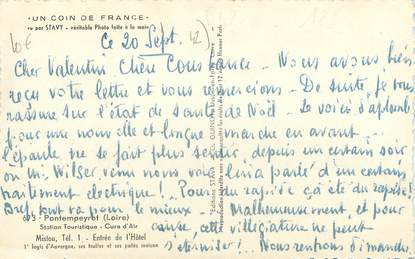 "UN COIN DE FRANCE"
vu par STAVY - véritable Photo faite à la main
10€
Ce 20 Sept. 42
Cher Valentin. Chère Constance - Nous avons bien
reçu votre lettre et vous remercions - De suite, je vous
rassure sur l'état de santé de Noël - Le voici d'aplomb
pour une nouvelle et longue marche en avant -
l'épaule ne se fait plus sentir, depuis un certain soir
où Mr Wilser, venu nous voir lui a parlé d'un certain
traitement électrique! Pour du rapide ça été du rapide!
Bref, tout va pour le mieux - Malheureusement, et pour
6075 - Pontempeyrat (Loire)
Station Touristique - Cure d'Air
cause, cette villégiature ne peut
Mistou, Tél. 1 - Entrée de l'Hôtel
s'éterniser! Nous rentrons dimanche
1er logis d'Auvergne, ses feuilles et ses patés maison
Editions STAVY